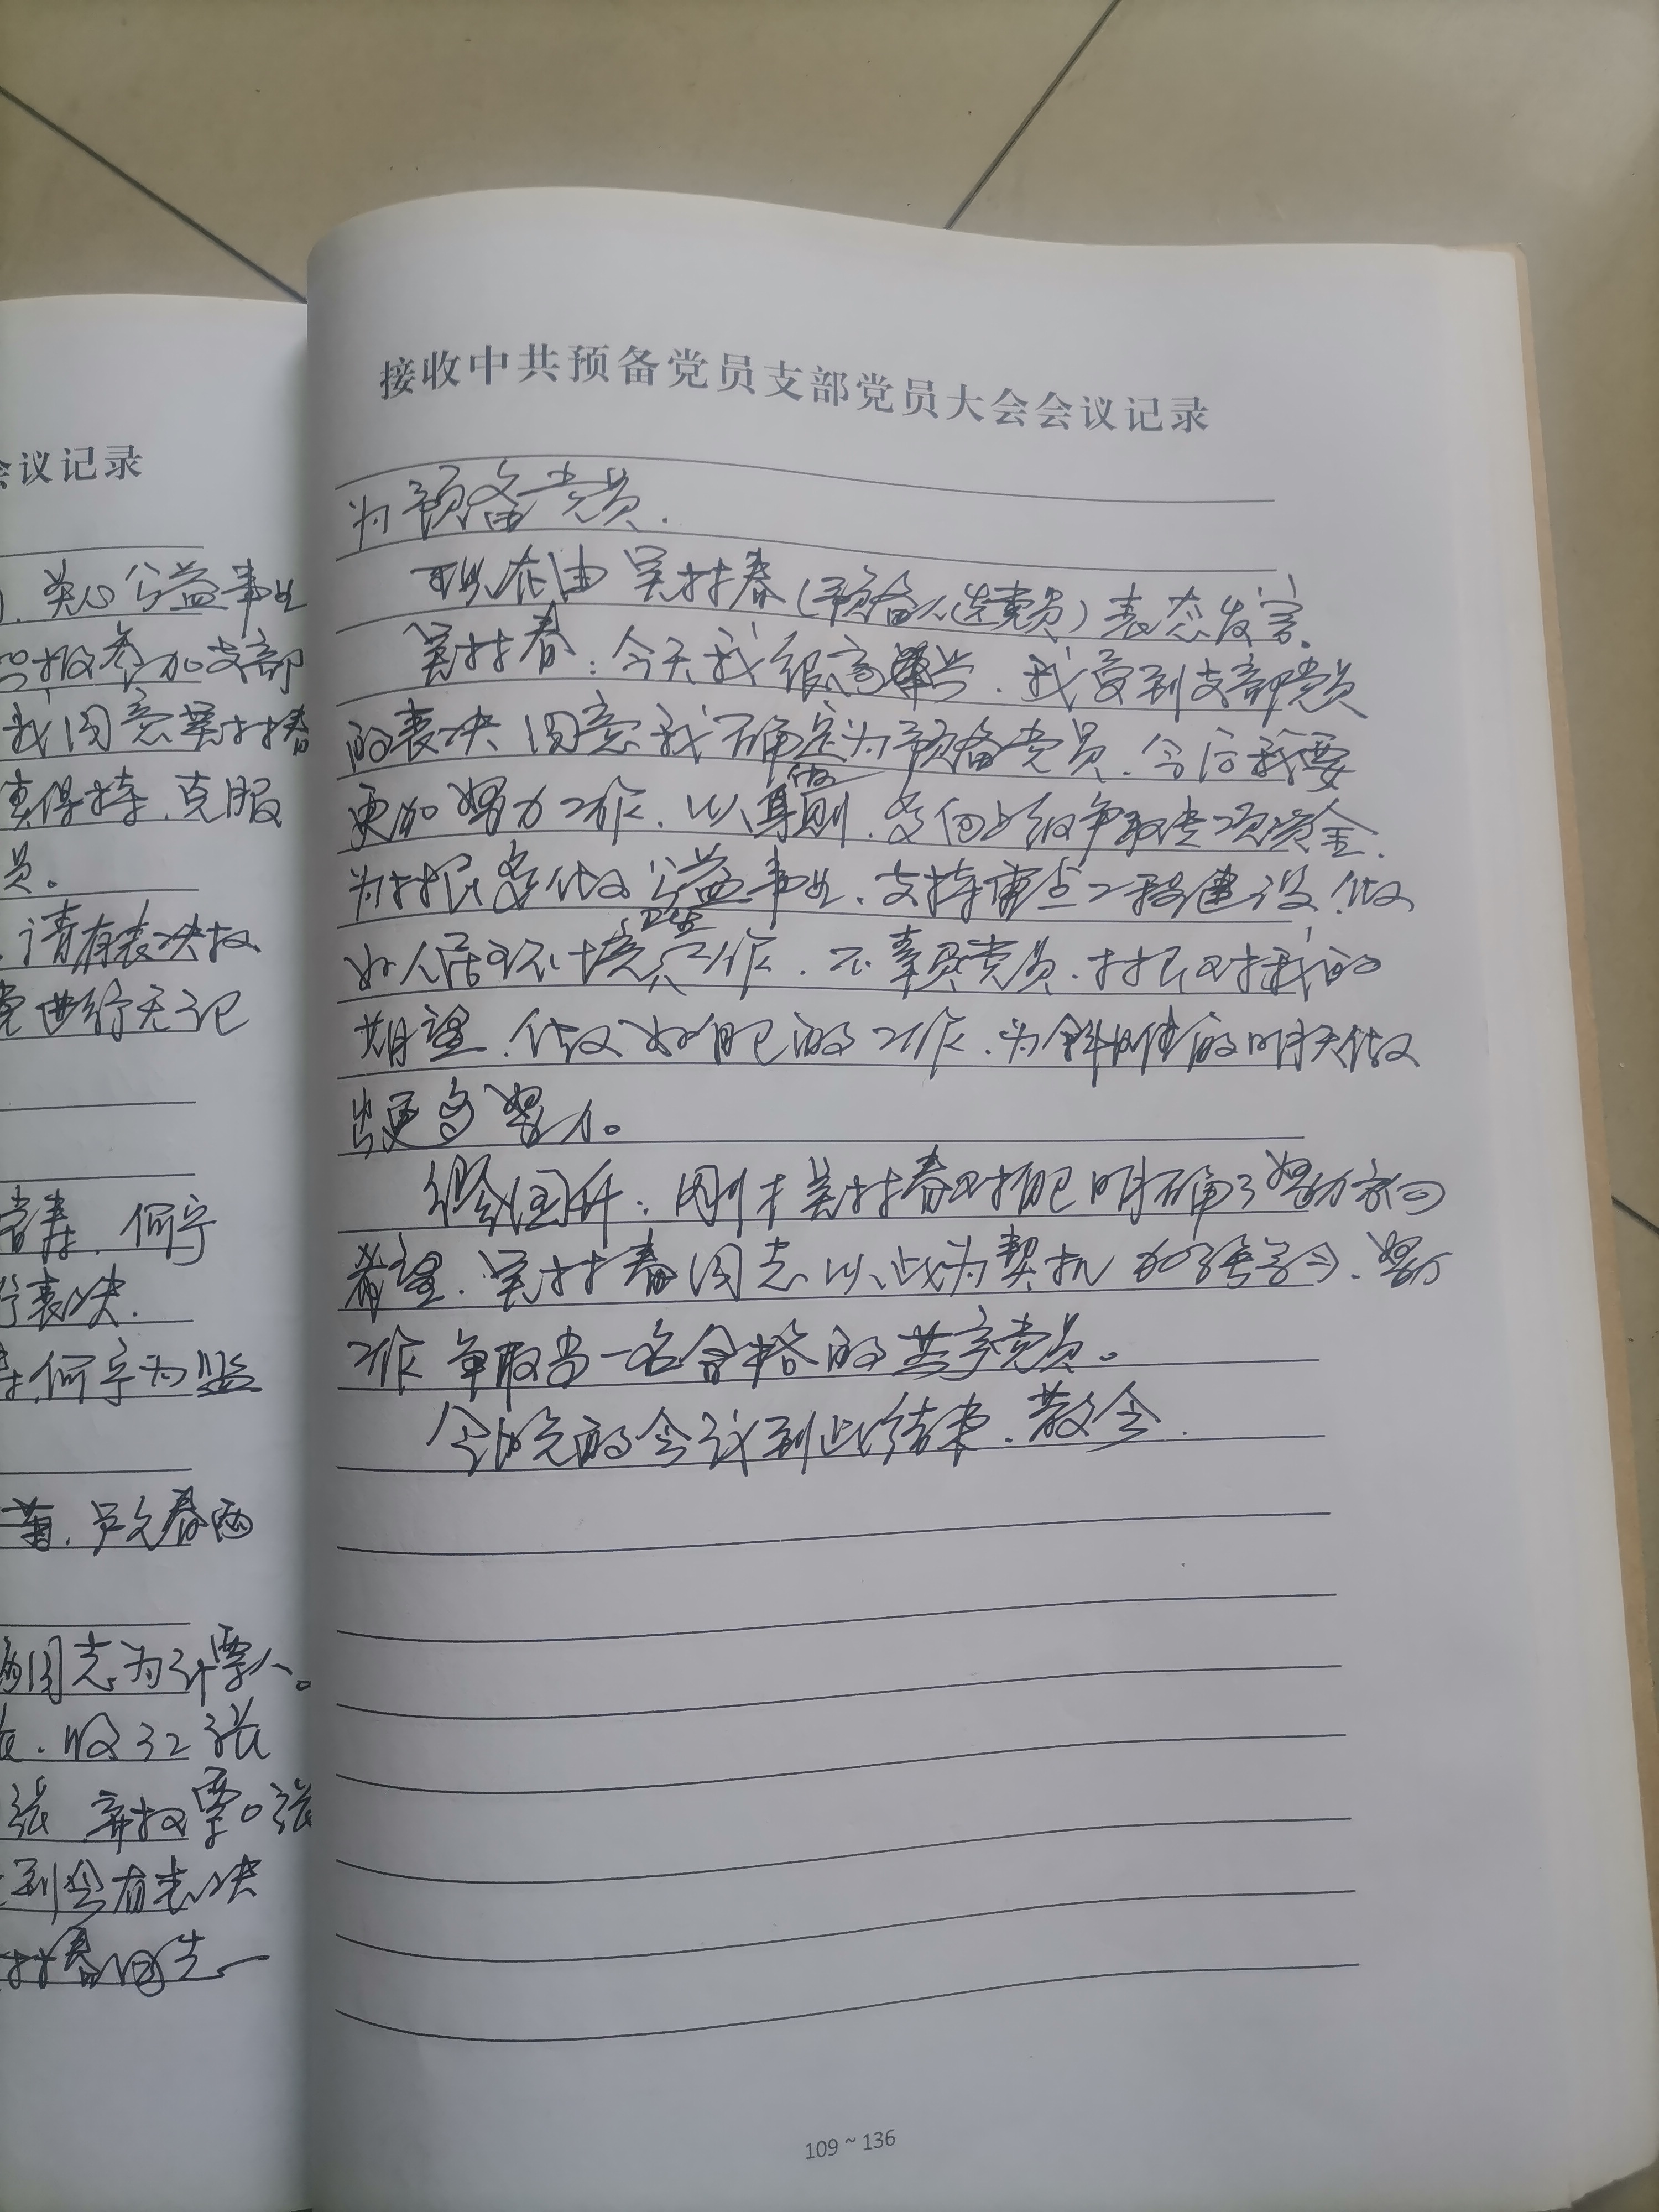 会议记录
关心公益事业
参加支部
我同意吴村春
真保持、克服
员。
请有表决权
进行无记
何宁
表决.
何宁为监
文春两
同志为计票人。
收32张
张 弃权票0张
到会有表决
村春同志
接收中共预备党员支部党员大会会议记录
为预备党员.
现在由吴村春(预备人选党员)表态发言。
吴村春:今天我很高兴.我受到支部党员
的表决同意我确定为预备党员.今后我要
更加努力工作.以身作则.多向上级争取专项资金.
为村民多做公益事业、支持重点工程建设.做
好人居环境工作.不辜负党员.村民对我的
期望.做好自己的工作.为的明天做
出更多努力。
国升:刚才吴村春对自己明确了努力方向
希望.吴村春同志以此为契机 加强学习、努力
工作 争取当一名合格的共产党员。
今晚的会议到此结束.散会.
109~136